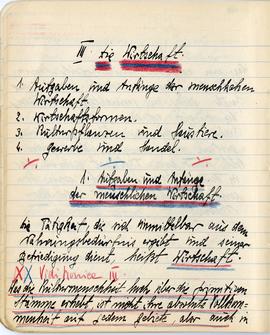 III. Die Wirtschaft.
1. Aufgaben und Anfänge der menschlichen
Wirtschaft.
2. Wirtschaftsformen.
3. Kulturpflanzen und Haustiere.
4. Gewerbe und Handel.
1. Aufgaben und Anfänge
der menschlichen Wirtschaft
Die Tätigkeit, die sich unmittelbar aus dem
Nahrungsbedürfnis ergibt und seiner
Befriedigung dient, heißt Wirtschaft.
XX Vidi III.
Was die Kulturmenschheit hoch über die primitiven
Stämme erhebt ist nicht ihre absolute Vollkom-
menheit auf jedem Gebiete, aber auch in